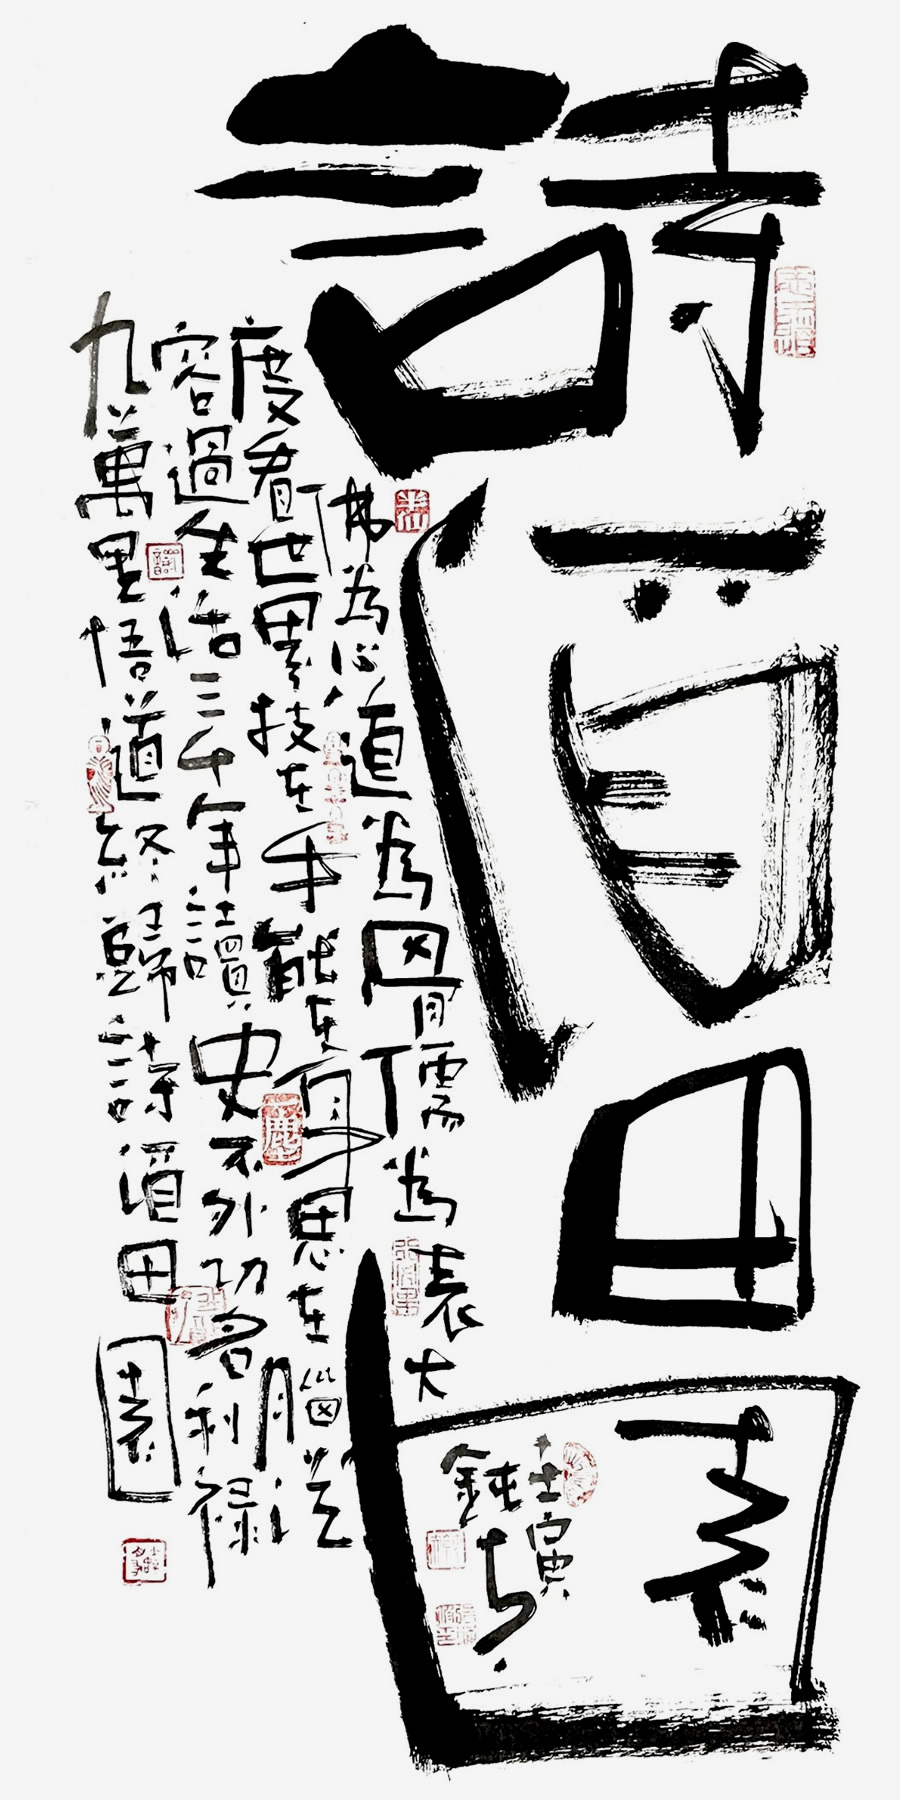 詩酒田園
佛為心道為骨儒為表大
度看世界技在手能在身思在腦從
容過生活三千年讀史不外功名利祿
九萬里悟道終歸詩酒田園
壬寅
鈍